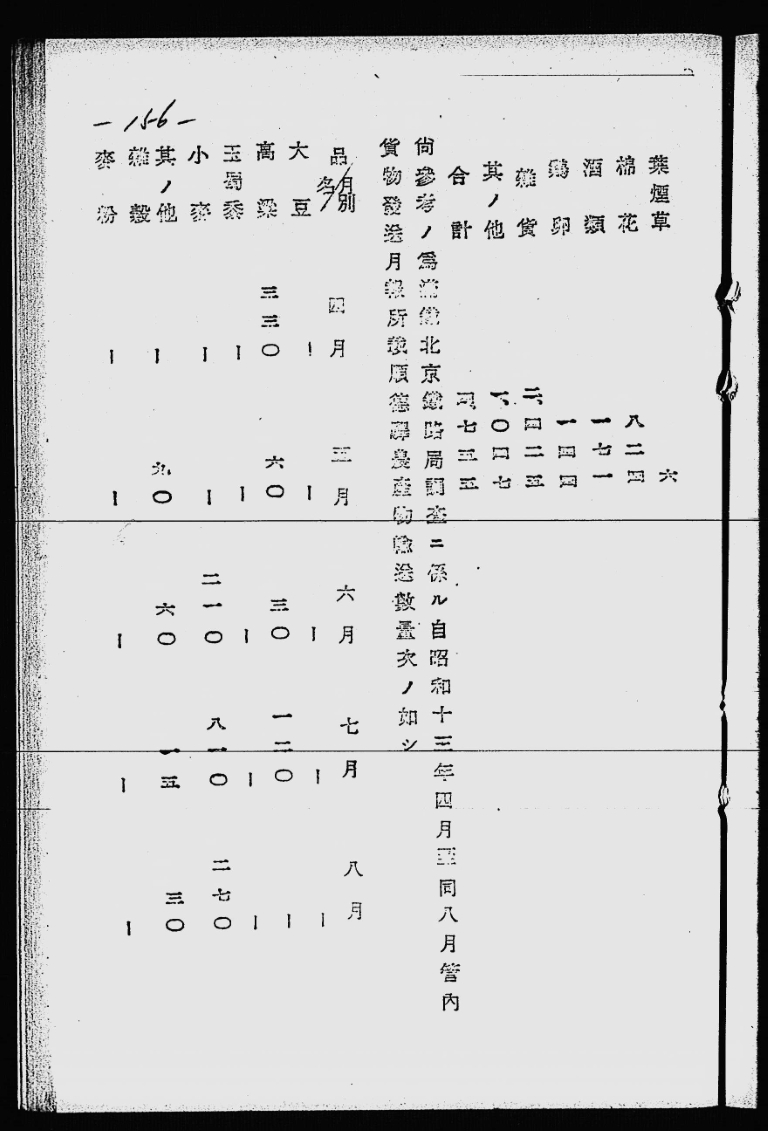 葉煙草 六
棉花 八二四
酒類 一七一
鶏卵 一四四
雑貨 二、四二五
其ノ他 一、〇四七
合計 四、七五五
尚參考ノ爲滿鐵北京鐵路局調査ニ係ル自昭和十三年四月至同八月管內
貨物發送月報所載順德驛農產物輸送數量次ノ如シ
品名/月別 四月 五月 六月 七月 八月
大豆 ー ー ー ー ー
高粱 三三〇 六〇 三〇 一二〇 ー
玉蜀黍 ー ー ー ー ー
小麥 ー ー 二一〇 八一〇 二七〇
其ノ他雜穀 ー 九〇 六〇 一五 三〇
麥粉 ー ー ー ー ー
— 156 —